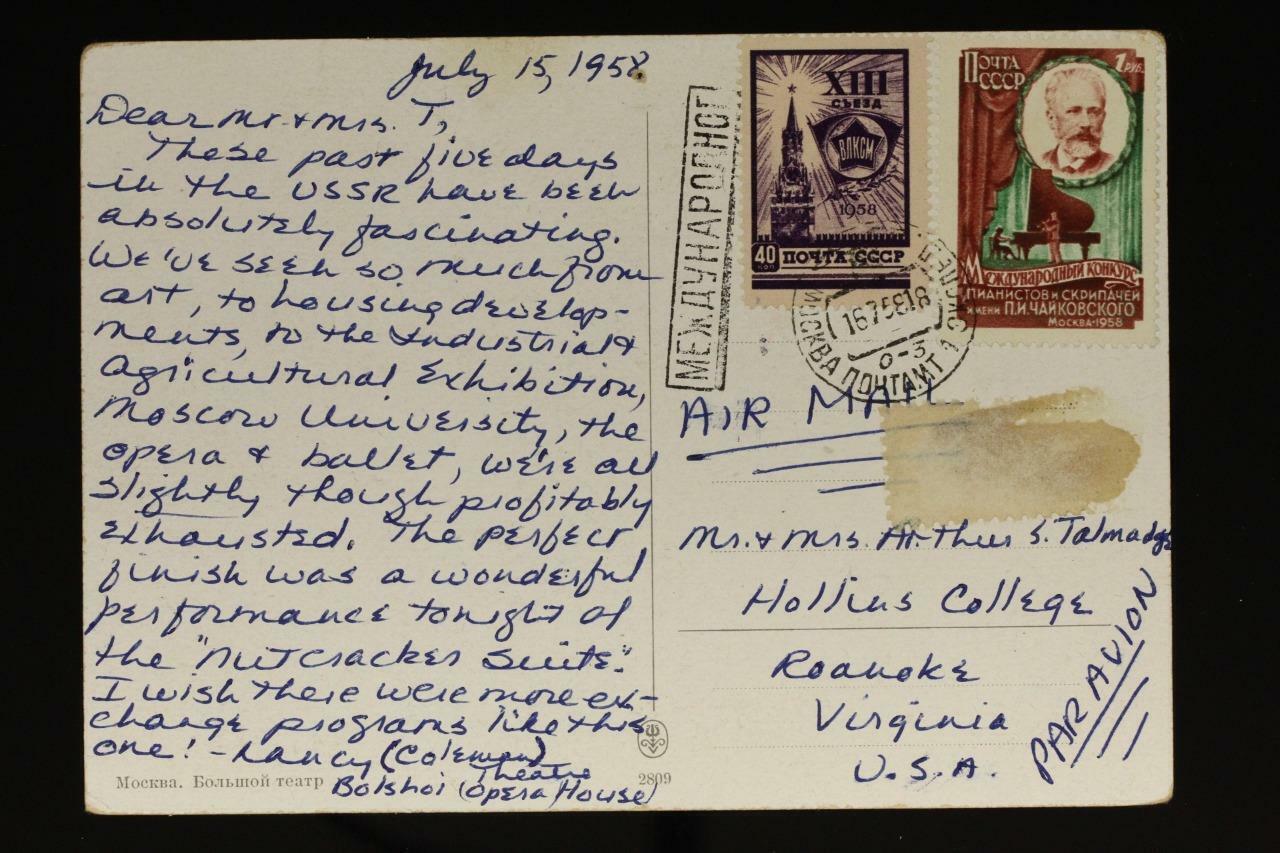 July 15, 1958
Dear Mr + Mrs. T,
These past five days
in the USSR have been
absolutely fascinating.
We've seen so much from
art, to housing develop-
ments, to the Industrial &
Agricultural Exhibition,
Moscow University, the
opera & ballet, we're all
slightly though profitably
exhausted. The perfect
finish was a wonderful
performance tonight of
the "Nutcracker Suite."
I wish there were more ex-
change programs like this
one! - Nancy (Coleman)
Москва. Большой театр
Theatre
Bolshoi (Opera House)
2809
МЕЖДУНАРОДНОЕ
XIII
СЪЕЗД
ВЛКСМ
1958
40 КОП
ПОЧТА СССР
ПОЧТА
СССР
1 РУБ.
МЕЖДУНАРОДНЫЙ КОНКУРС
ПИАНИСТОВ И СКРИПАЧЕЙ
ИМЕНИ П.И. ЧАЙКОВСКОГО
МОСКВА-1958
МОСКВА ПОЧТАМТ 1
16758.18
0-3
AIR MAIL
Mr. + Mrs. Arthur S. Talmadge
Hollins College
Roanoke
Virginia
U.S.A.
PAR AVION